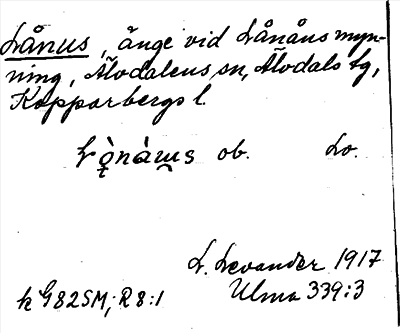 Lånus, änge vid Lånåns myn-
ning, Älvdalens sn, Älvdals tg,
Kopparbergs l.
ob. Lo.
L. Levander 1917
k G82SM; R8:1 Ulma 339:3